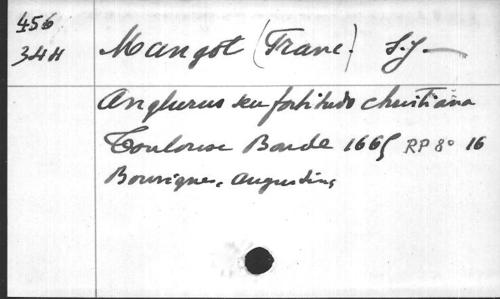 456
344
Mangot (Franc.) S.J.
Anglurus seu fortitudo christiana
Toulouse Boude 1665 RP 8° 16
Bourignes, Augustins